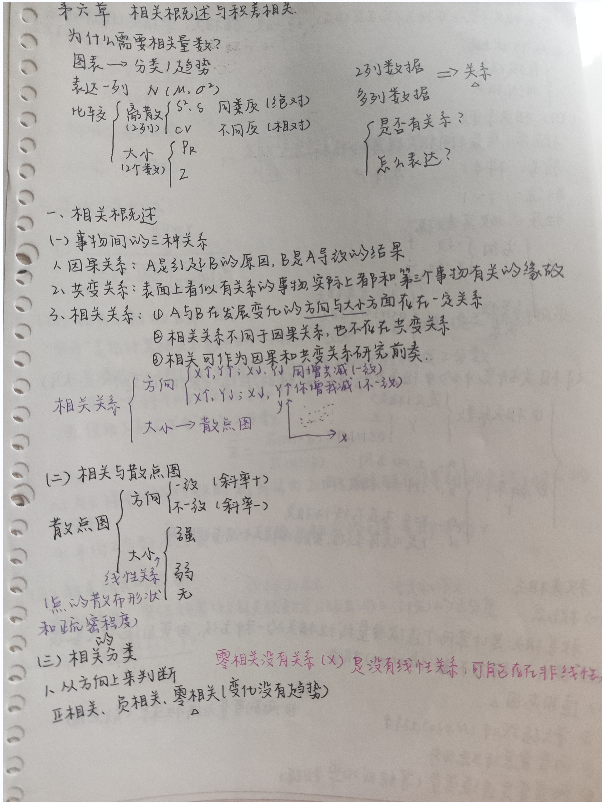 第六章 相关概述与积差相关.
为什么需要相关量数?
图表 → 分类/趋势
表达一列 N(μ,σ²)
比较 离散(2列) S²、S 同类质(绝对)
CV 不同质(相对)
大小(2个数) PR
Z
2列数据 ⇒ 关系
多列数据
是否有关系?
怎么表达?
一、相关概述
(一)事物间的三种关系
1、因果关系:A是引起B的原因,B是A导致的结果
2、共变关系:表面上看似有关系的事物实际上都和第三个事物有关的缘故
3、相关关系:①A与B在发展变化的方向与大小方面存在一定关系
②相关关系不同于因果关系,也不存在共变关系
③相关可作为因果和共变关系研究前奏.
相关关系 方向 X↑,Y↑;X↓,Y↓ 同增共减(一致)
X↑,Y↓;X↓,Y↑ 你增我减(不一致)
大小→散点图
y
x
(二)相关与散点图
散点图 方向 一致(斜率+)
不一致(斜率-)
大小, 强
线性关系 弱
(点的散布形状 无
和疏密程度)
(三)相关的分类
零相关没有关系(X) 是没有线性关系,可能存在非线性
1、从方向上来判断
正相关、负相关、零相关(变化没有趋势)